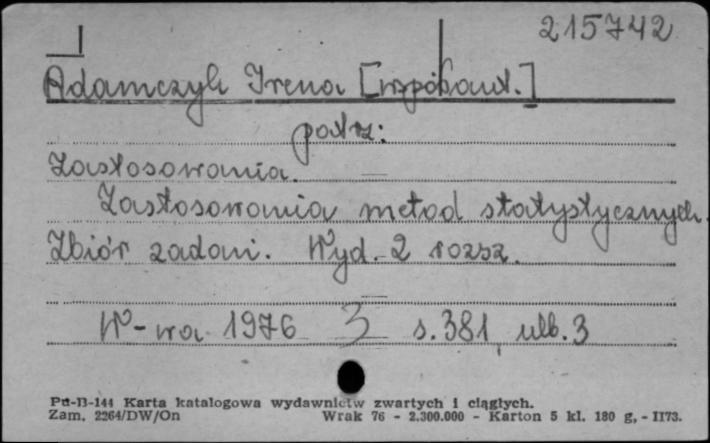 215742
Adamczyk Irena [współaut.]
patrz:
Zastosowania.
Zastosowania metod statystycznych.
Zbiór zadań. Wyd. 2 rozsz.
W-wa 1976 3 s.381, nlb.3
Pu-B-144 Karta katalogowa wydawnictw zwartych i ciągłych.
Zam. 2264/DW/On Wrak 76 - 2.300.000 - Karton 5 kl. 180 g. - II73.